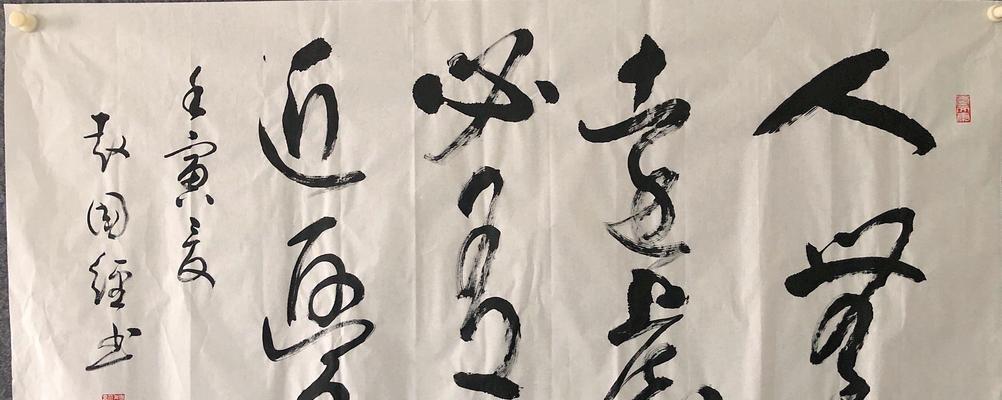 人無
遠慮
必有
近憂
壬寅夏
国經书